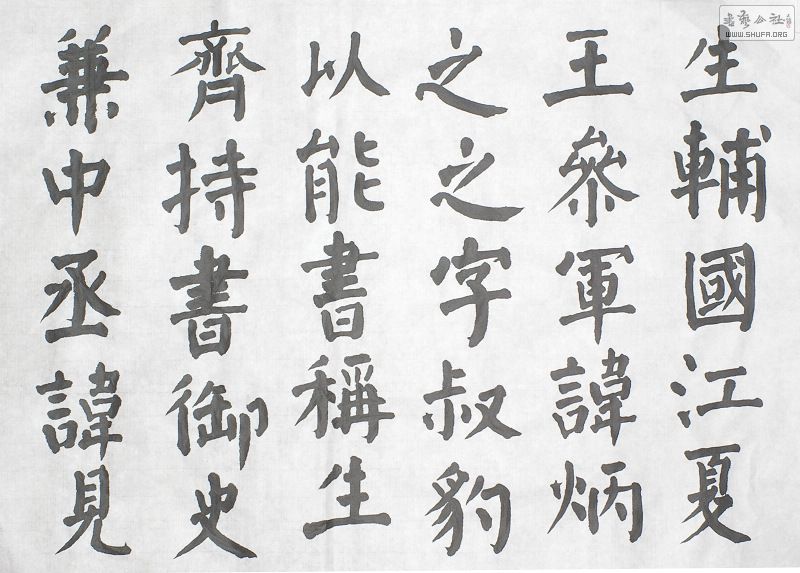 生輔國江夏
王參軍諱炳
之之字叔豹
以能書稱生
齊持書御史
兼中丞諱見
書藝公社
WWW.SHUFA.ORG